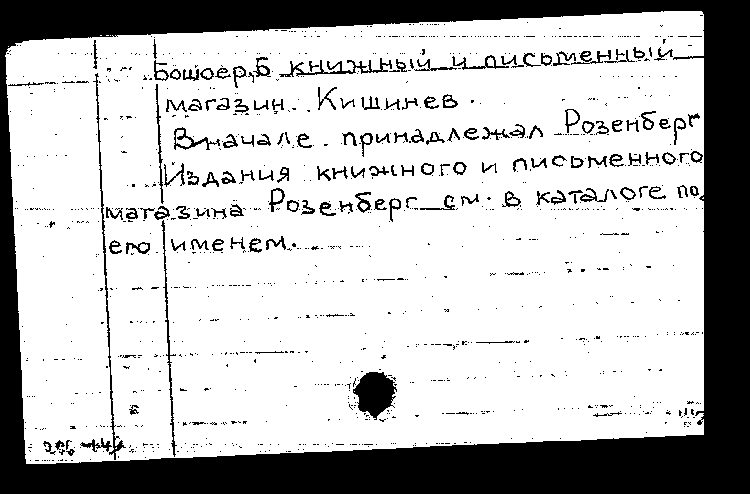 Бошоер, Б книжный и письменный
магазин. Кишинев.
Вначале принадлежал Розенберг
Издания книжного и письменного
магазина Розенберг см. в каталоге по
его именем.